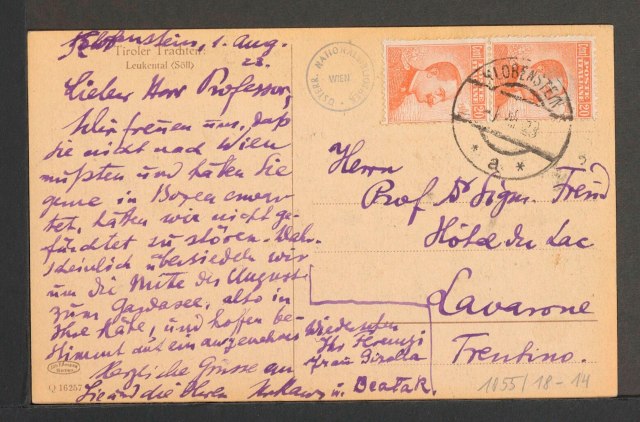 Klobenstein, 1. Aug.
Tiroler Trachten:
Leukental (Söll)
23.
Lieber Herr Professor,
Wir freuen uns, daß
Sie nicht nach Wien
mußten und hätten Sie
gerne in Bozen erwar-
tet, hätten wir nicht ge-
fürchtet zu stören. Wahr-
scheinlich übersiedeln wir
um die Mitte des August
zum Gardasee, also in
Ihre Nähe, und hoffen be-
stimmt auf ein angenehmes
Wiedersehen
Herzliche Grüsse an
Sie und die Ihren
Ihr Ferenczi
Frau Gizella
u. Beata R.
Q 16257
ÖSTERR. NATIONALBIBLIOTHEK
WIEN
20
20
KLOBENSTEIN
* a *
Herrn
Prof Dr Sigm. Freud
Hôtel du Lac
Lavarone
Trentino.
1055/18-14